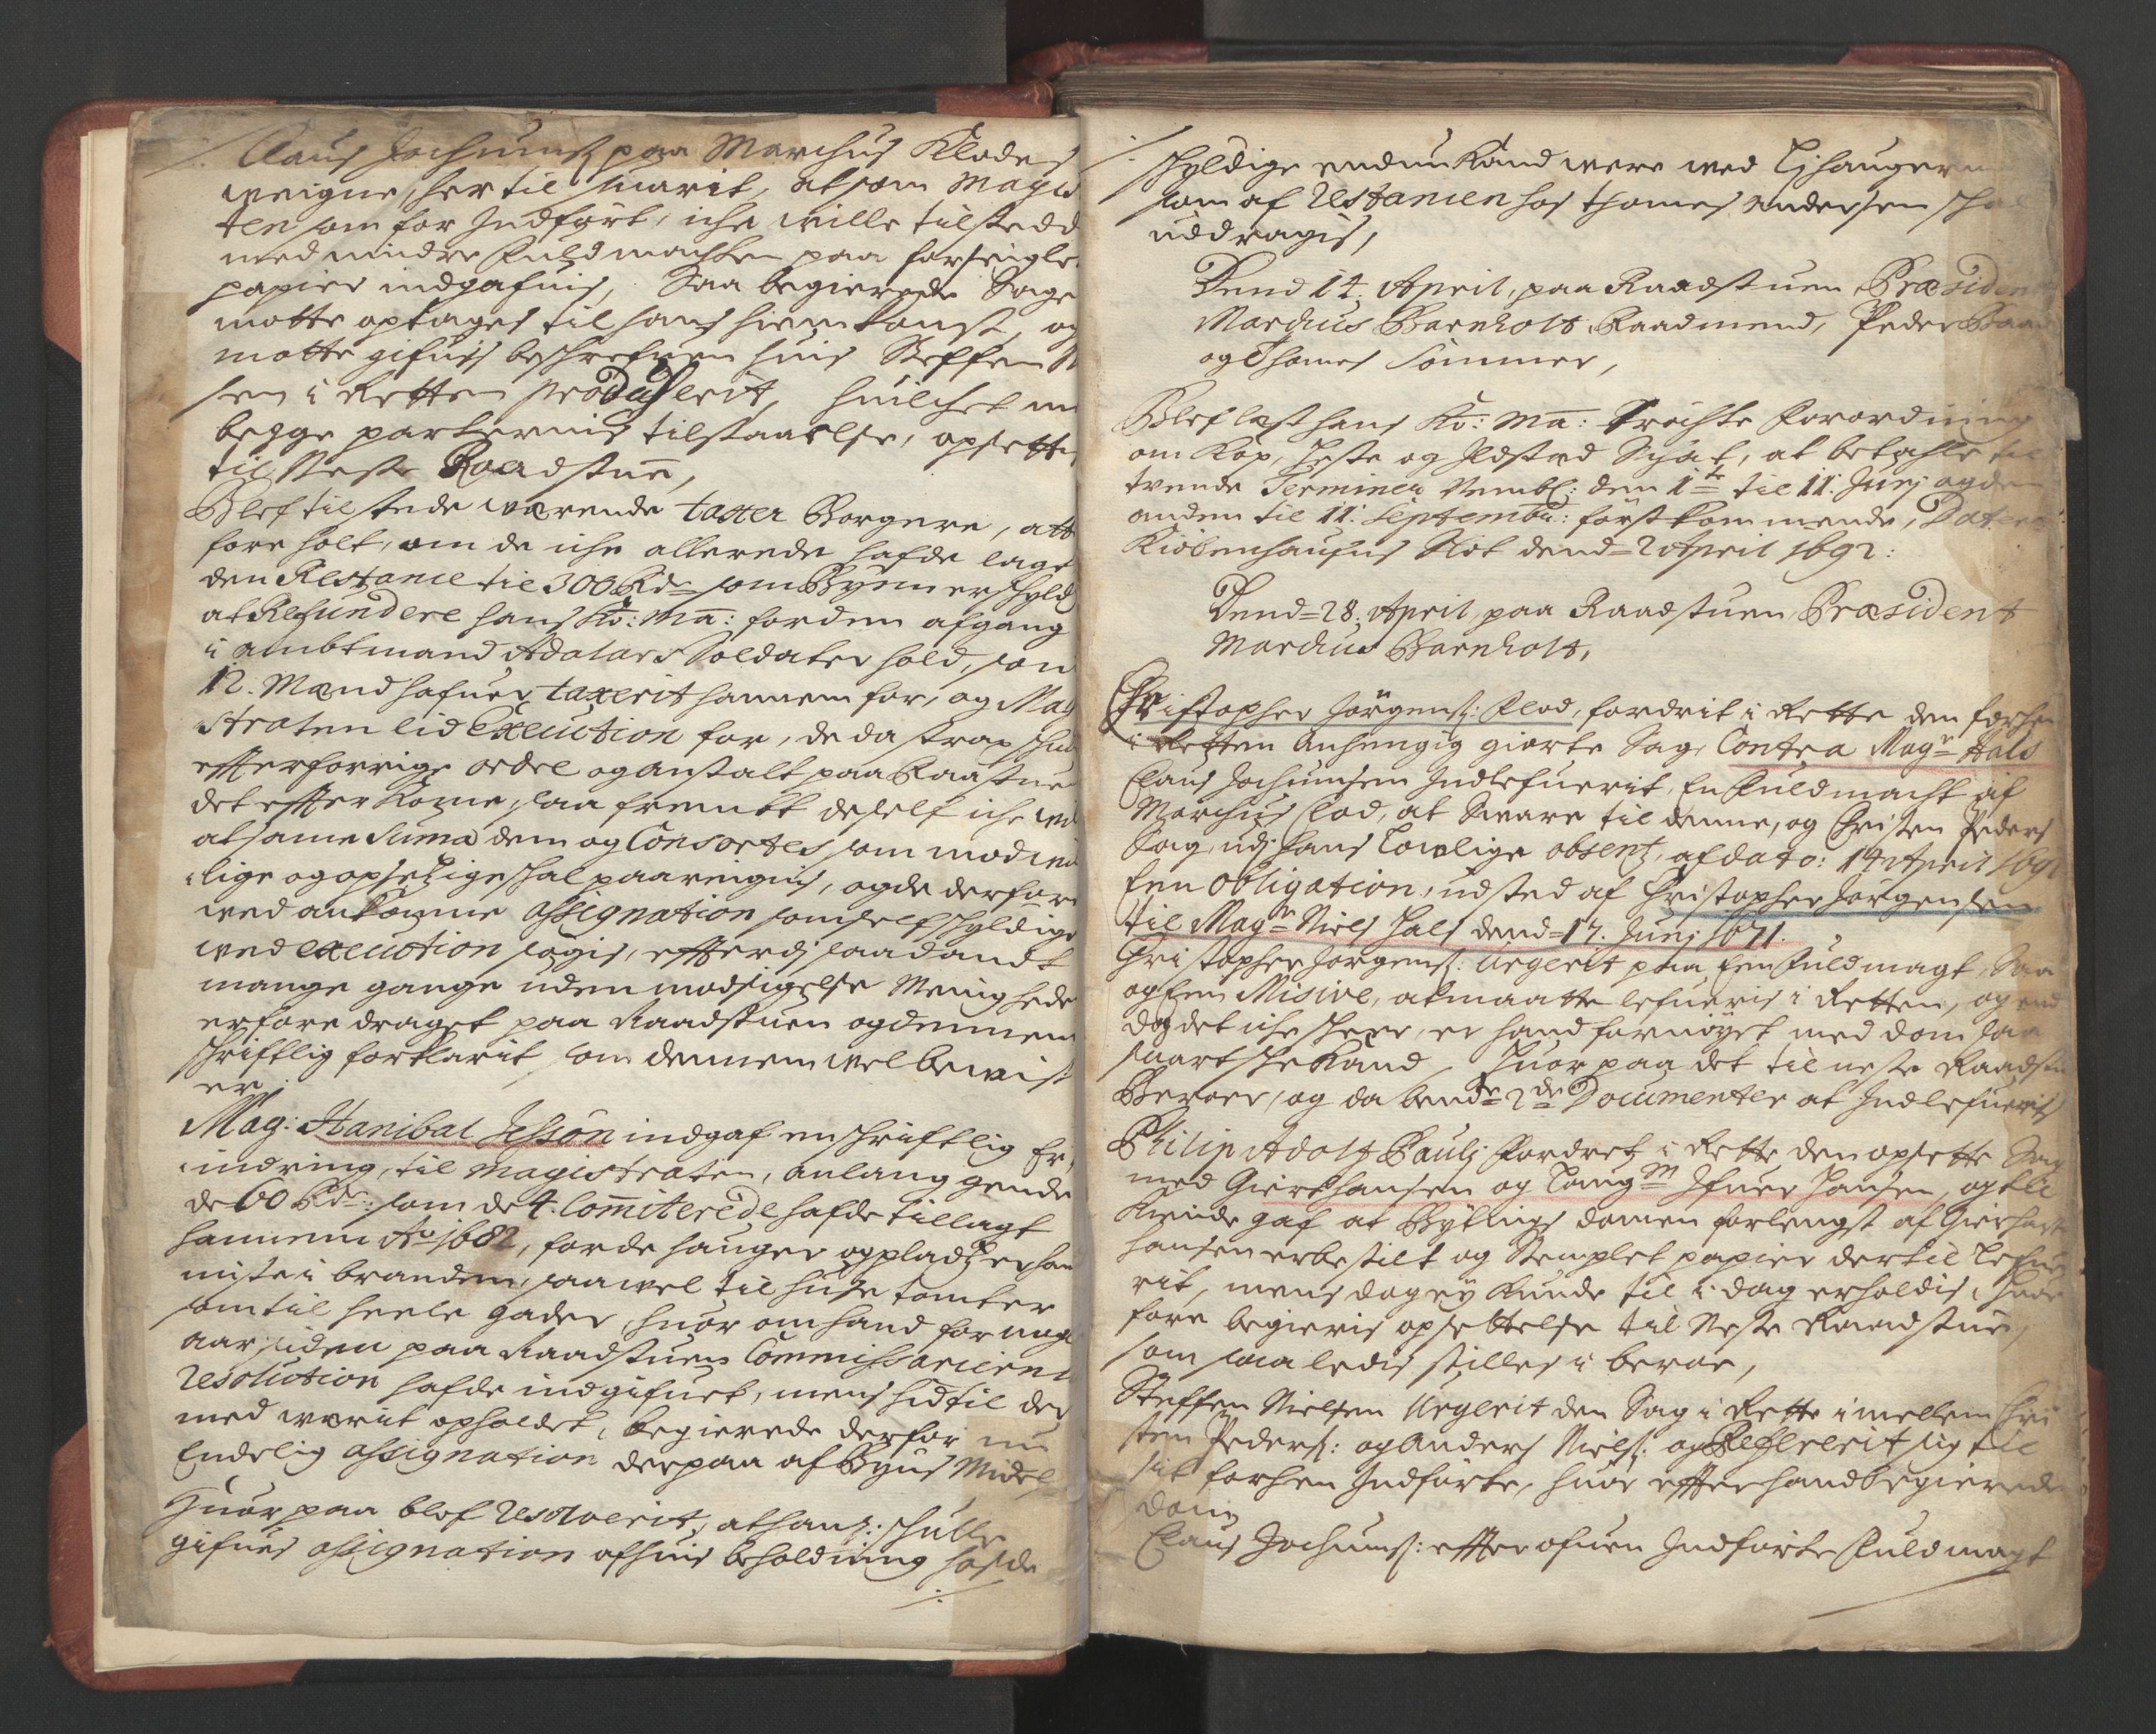 /. Claus Jochumß. paa Marchus Klodes
weigne, her til suarit, at som Magist
ten som for Indført, iche wille tilstede
med mindre Fuldmachten paa forseigle
papier indgafuis, Saa begierede Sage
motte optages til hans hiemkomst, og
motte gifuis beschrefuen huis Steffen N
sen i Retten producerit, huilchet m
begge parternis tilstaaelse, opsettis
til Neste Raadstue,
Blef tilstede wærende taxter Borgere, att
fore holt, om de iche allerede hafde lagt
den Restance til 300 Rdr som Byen er schyld
at Refundere hans Ko: Ma: for dem afgang
i ambtmand Adalars Soldater hold, som
12. Mænd hafuer taxerit hannem for, og Mag
straten lid Execution for, de da strax schulle
effter forrige ordre og anstalt paa Raastue
det effterkomme, saa fremt de self iche will
at samme Suma dem og Consortes som modwil
lige og opsetzige schal paareignis, og de derfore
wed ankomne assignation som self schyldige
wed execution søgis, effterdj saadandt
mange gange uden modsigelse Menighede
er fore draget paa Raadstuen og dennem
schriftlig forklarit som dennem wel bewist
er,
Mag: Hanibal Jessøn indgaf en schriftlig Er,
indring, til Magistraten, anlanggende
de 60 Rdr: som de 4. Comiterede hafde tillagt
hannem Ao 1682, for de hauger og pladtzer han
miste i branden, saa wel til huse tomter
som til heele gader, huor om hand for nogl
aar siden paa Raadstuen Commissariernes
resolution hafde indgifuet, mens hidtil der
med wærit opholdet, begierede derfor nu
Endelig assignation derpaa af Byens Midel
Huor paa blef resolverit, at hanß: schulle
gifues assignation af huis beholdning hos de
./.
/. schyldige endnu kand were wed Tjhaugern
som af restancen hos Thomes Andersen schal
uddragis,
Dend 14. April, paa Raadstuen Præsident
Marchus Barnholt, Raadmend, Peder Baad
og Thomes Sommer,
Blef læst hans Ko: Ma: Trøchte Forordning
om Kop, Heste og Ildsted Schat, at betahle til
tvende Terminer Nembl: den 1te til 11. Junj og den
anden til 11. Septembr: først kommende, Datered
Kiøbenhaufns Slot dend= 2 April 1692:
Dend= 28. April, paa Raadstuen, Præsident
Marchus Barnholt,
Christopher Jørgenß: Klod, fordrit i Rette den forhen
i Retten anhengig giorte Sag, Contra Magr Hals
Claus Jochumsen Indlefuerit, En Fuldmacht af
Marchus Clod, at Suare til denne, og Christen Peders
Sag, udj hans Lowlige absentz, af dato: 14 April 1692
Een obligation, udsted af Christopher Jørgensen
til Magr Niels Hals dend= 17. Junj 1671.
Christopher Jørgenß: Urgerit paa Een Fuldmagt, Saa
og Een Misive, at maatte lefueris i Retten, og end
dog det iche scheer, er hand fornøyet med dom saa
snart schee kand, Huor paa det til neste Raadstue
Beroer, og da bemte 2de Documenter at Indlefueris
Philip Adolf Paulj Fordret i Rette den opsette Sag
med Giert Hansen og Laugm Ifuer Hansen, og til
Kiende gaf at Bytings domen forlengst af Giert
Hansen er bestilt og Stemplet papier dertil Lefue
rit, mens dog ey kunde til i dag erholdis, huor
fore begieris opsettelse til Neste Raadstue,
som saaledis stilles i beroe,
Steffen Nielsen Urgerit den Sag i Rette imellem Chri
sten Pederß: og Anders Nielß: og Refererit sig til
sit forhen Indførte, huor effter hand begierede
dom,
Claus Jochumß: effter ofuen Indførte Fuldmagt